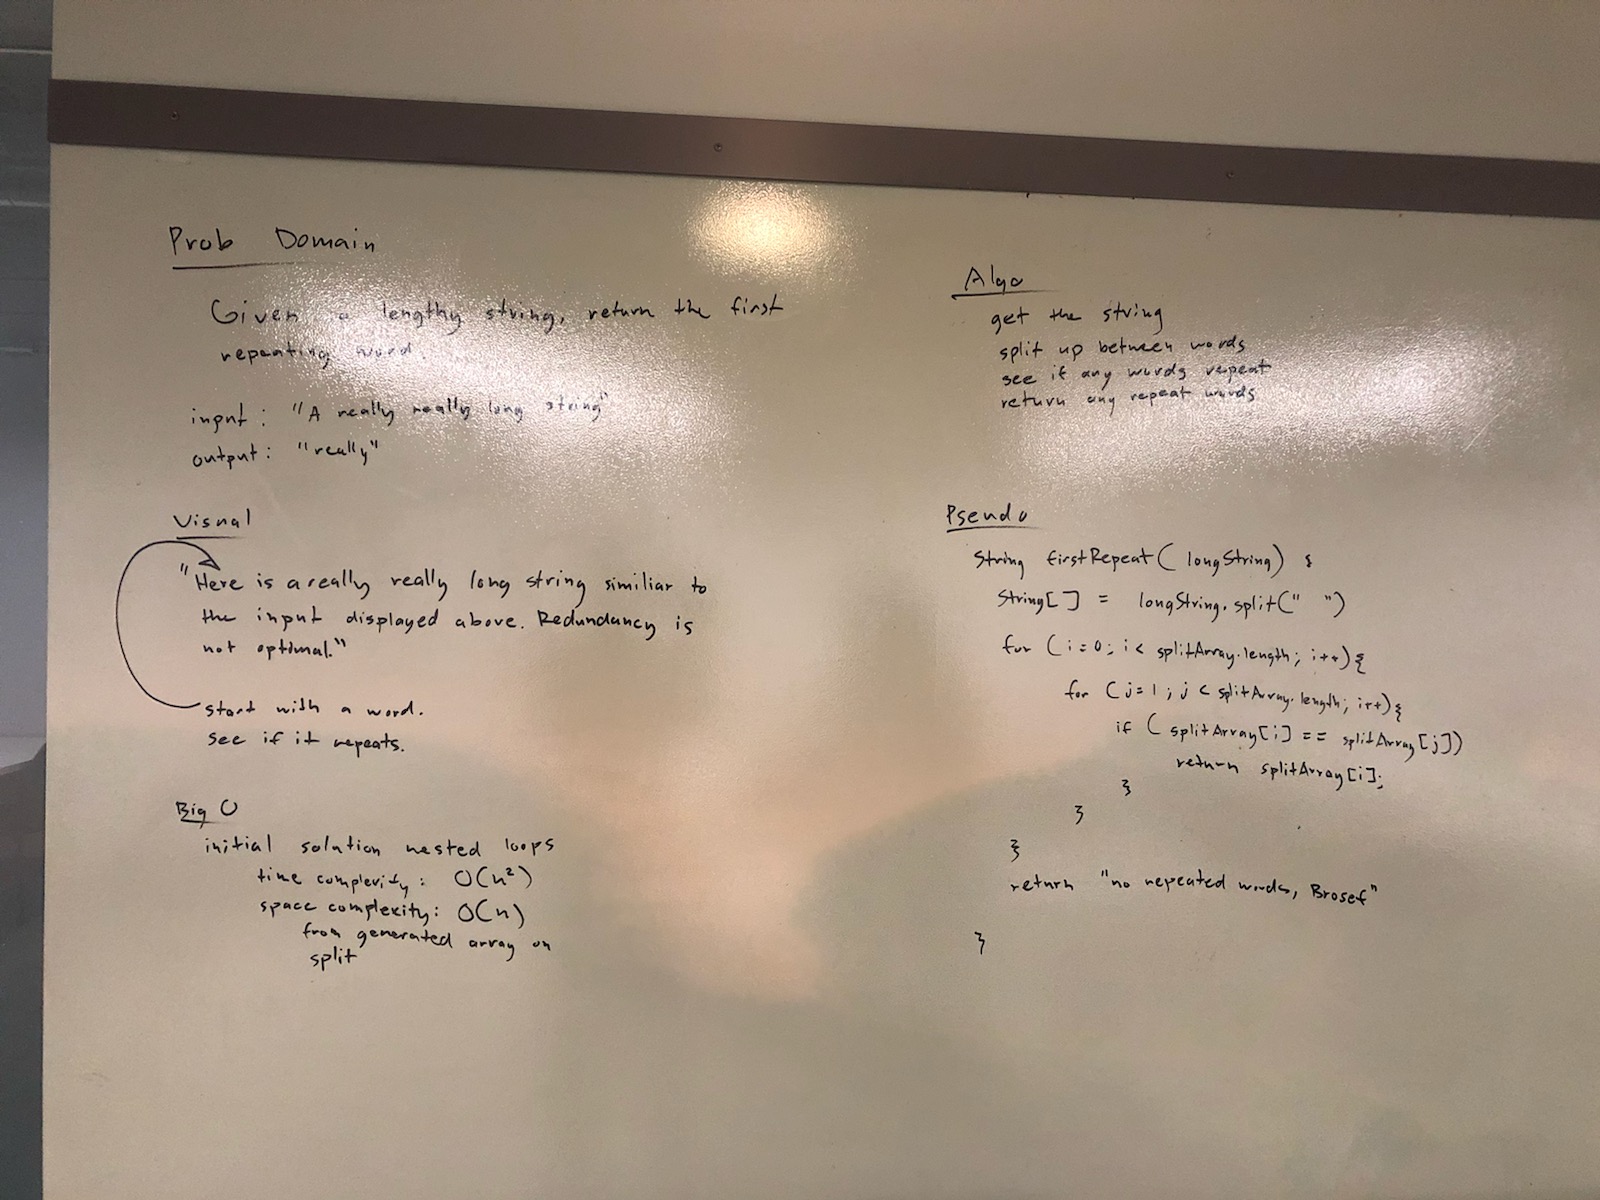 Prob Domain
Given a lengthy string, return the first
repeating word.
input: "A really really long string"
output: "really"
Visual
"Here is a really really long string similiar to
the input displayed above. Redundancy is
not optimal."
start with a word.
see if it repeats.
Big O
initial solution nested loops
time complexity: O(n²)
space complexity: O(n)
from generated array on
split
Algo
get the string
split up between words
see if any words repeat
return any repeat words
Pseudo
String firstRepeat( longString) {
String[] = longString.split(" ")
for (i=0; i< splitArray.length; i++){
for (j=1; j < splitArray.length; i++){
if ( splitArray[i] == splitArray[j])
return splitArray[i];
}
}
}
return "no repeated words, Brosef"
}